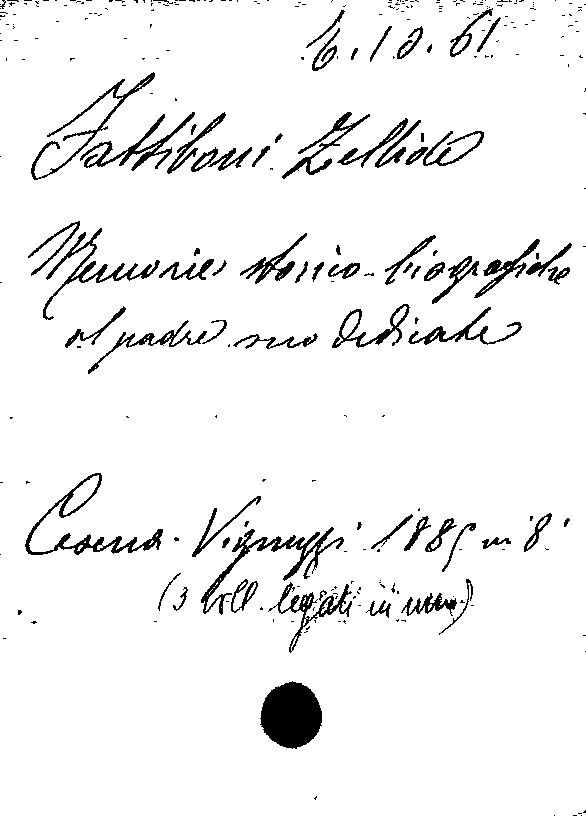 6.10.61
Fattiboni Zellide
Memorie storico-biografiche
al padre suo dedicate
Cesena. Vignuzzi 1885 in 8°
(3 voll. legati in uno)